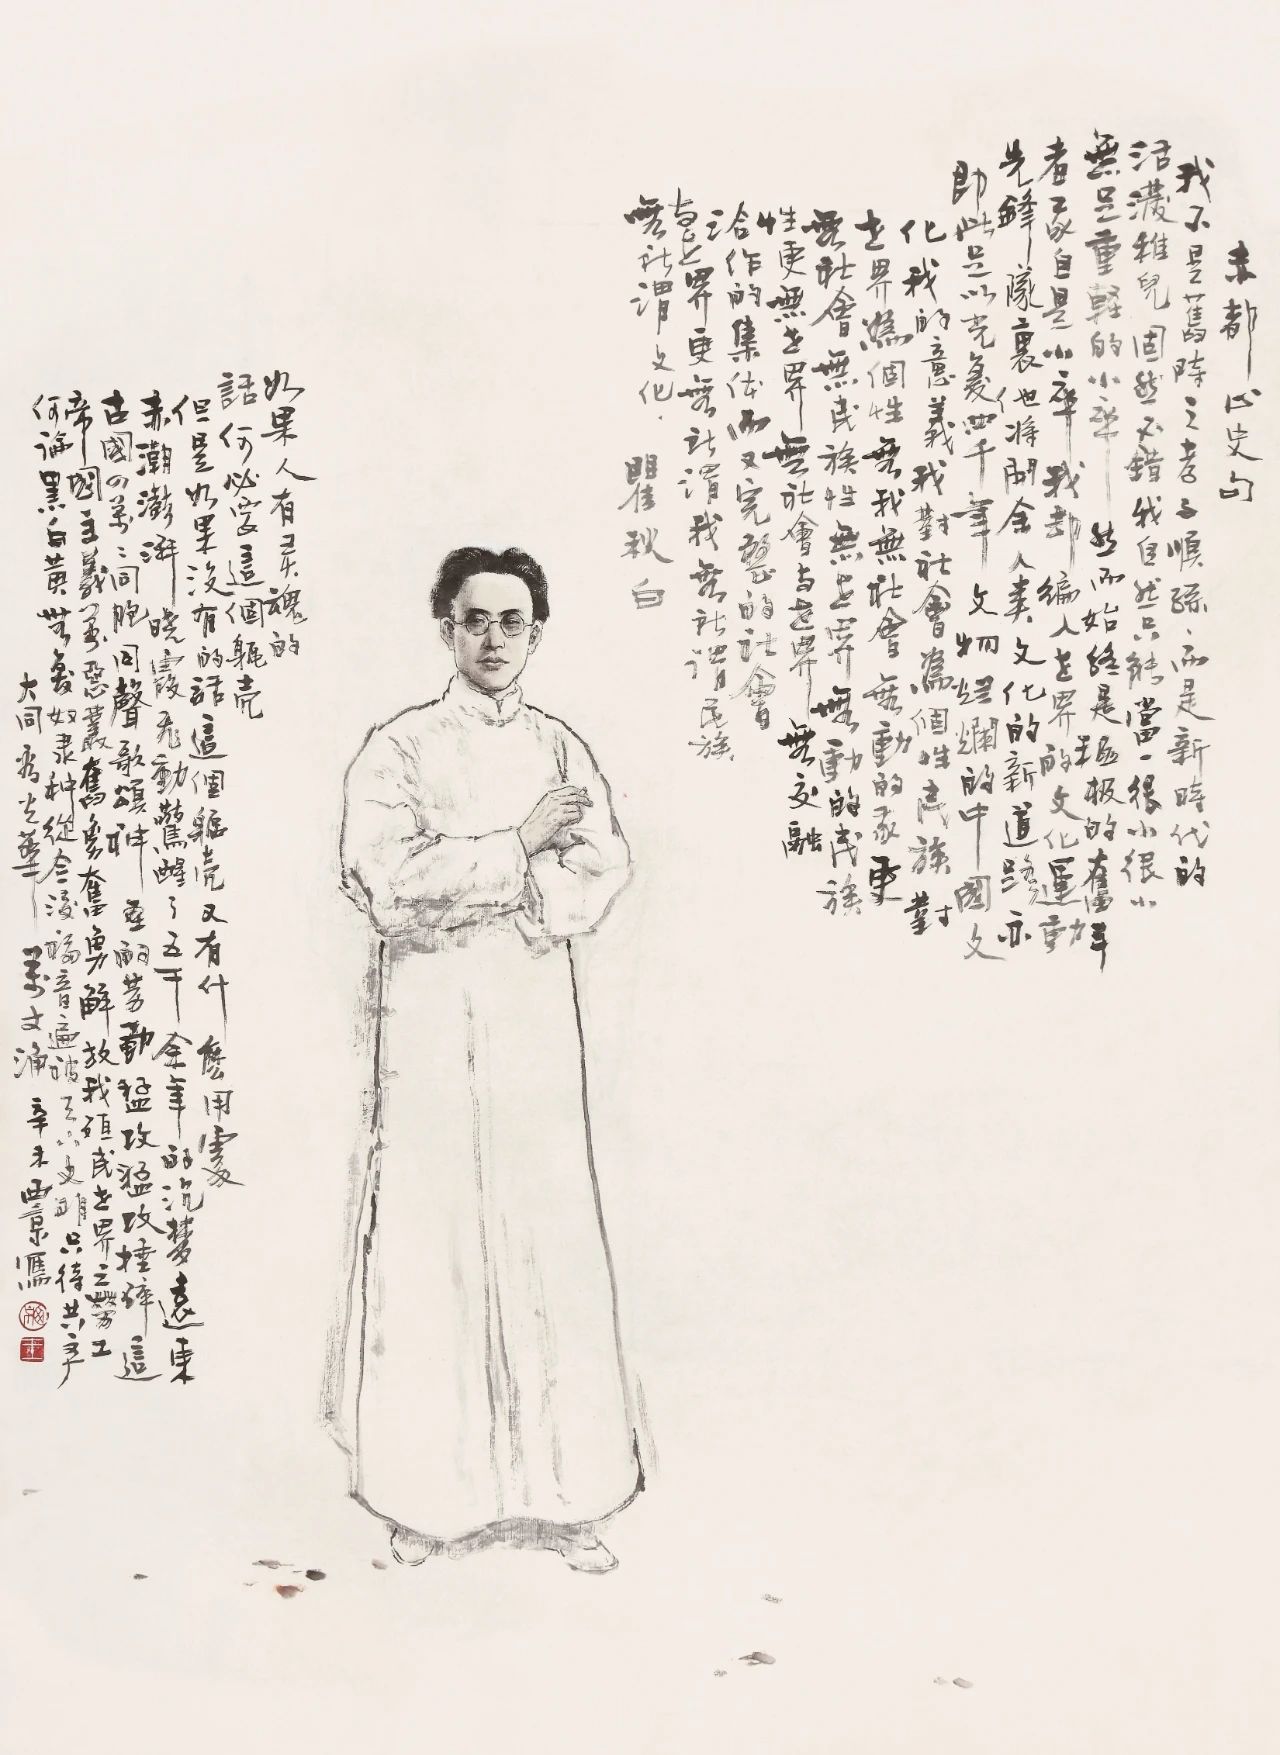 赤都心史句
我不是舊時之孝子順孫、而是新時代的
活潑稚兒 固然不錯 我自然只能當一很小很小
無足重輕的小卒 然而始終是積極的奮鬥
者 我自是小卒 我卻編入世界的文化運動
先鋒隊裏 他將開余人类文化的新道路 亦
即此足以光复四千年文物燦爛的中國文
化 我的意義 我對社會為個性民族對
世界為個性 無我無社會 無動的我更
無社會 無民族性無世界 無動的民族
性更無世界 無社會与世界 無交融
洽作的集体而又完整的社會
与世界更無所謂我無所謂民族
無所謂文化. 瞿秋白
如果人有灵魂的
話 何必要這個軀壳
但是如果沒有的話 這個軀壳又有什麼用處
赤潮澎湃 曉霞飛動 驚醒了五千余年的沉夢 遠東
古國四萬萬同胞 同聲歌頌神聖的勞動 猛攻猛攻 捶碎這
帝國主義萬惡叢 奮勇奮勇 解放我殖民世界之勞工
何論黑白黃 無复奴隶种 從今後福音遍被 天下文明 只待共产
大同 看光華萬丈涌 辛未 西京馮